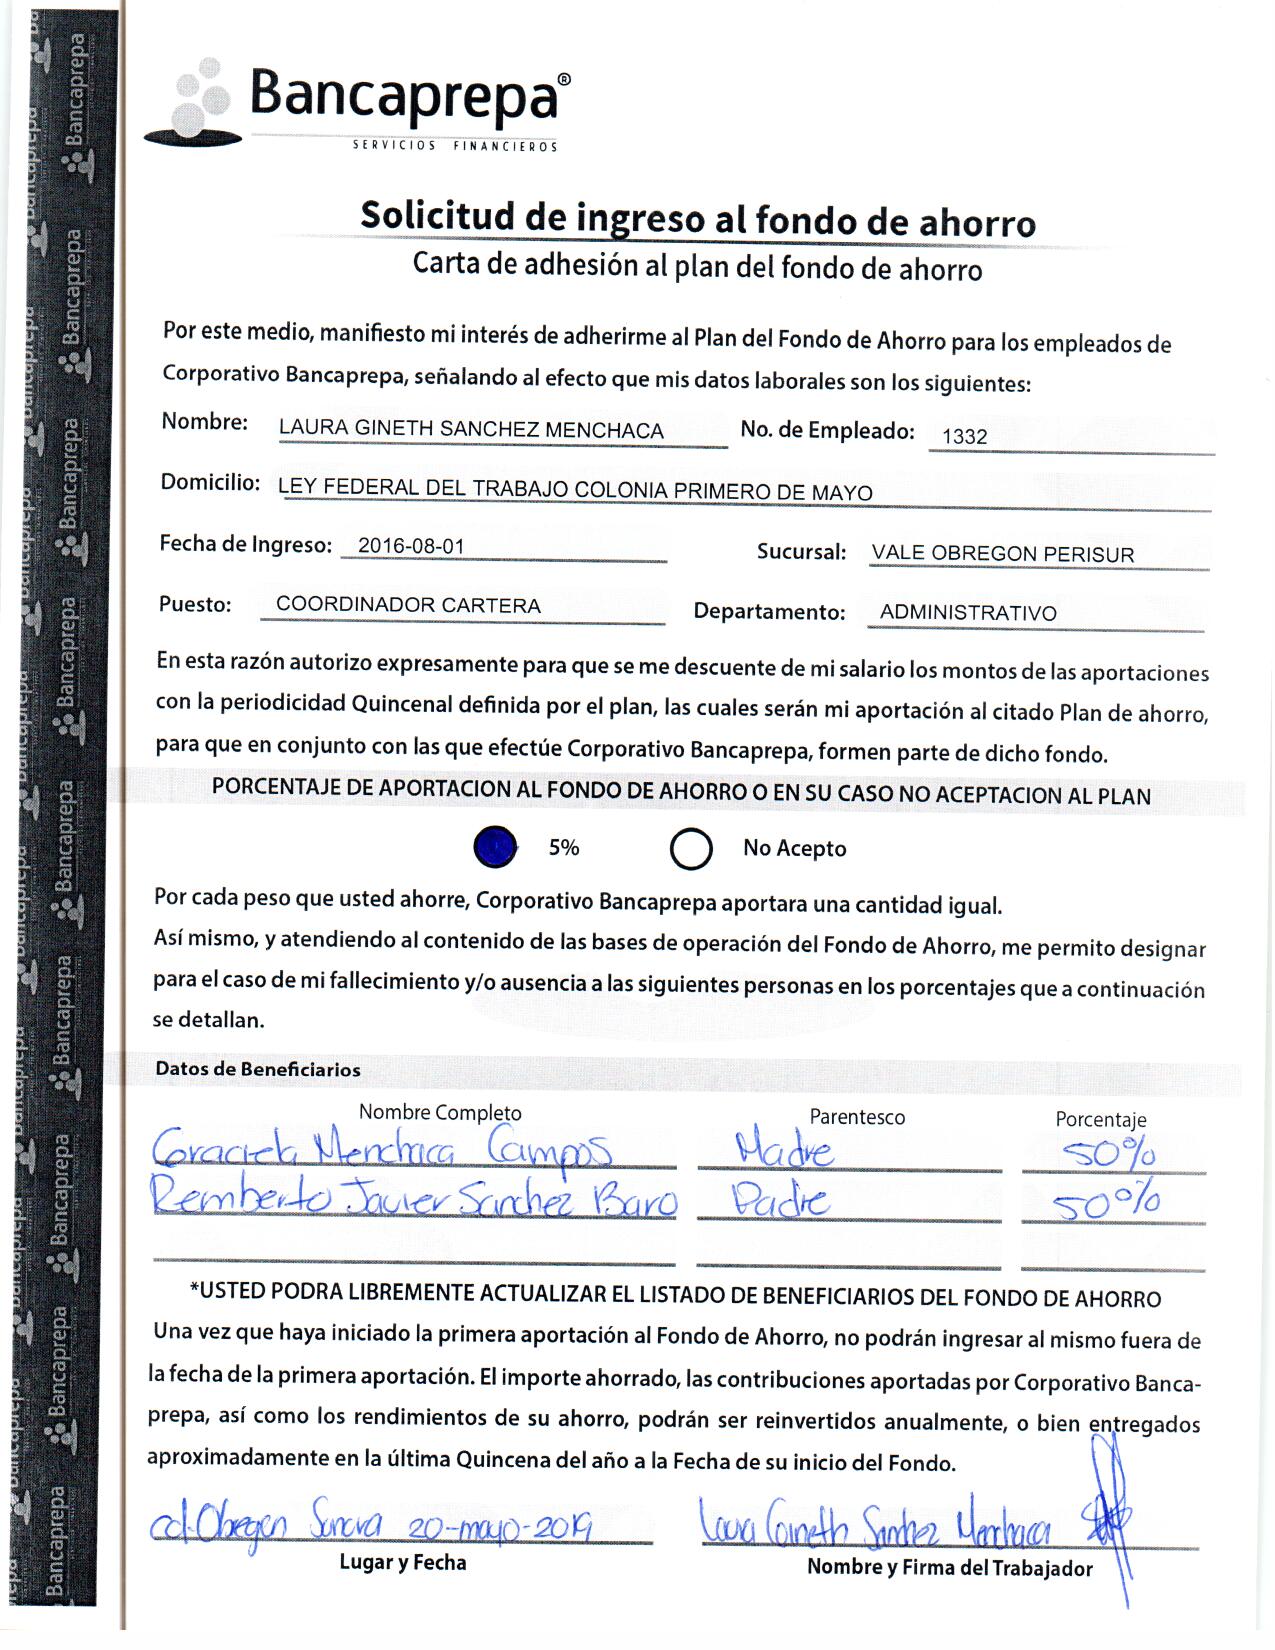 Bancaprepa®
SERVICIOS FINANCIEROS
Solicitud de ingreso al fondo de ahorro
Carta de adhesión al plan del fondo de ahorro
Por este medio, manifiesto mi interés de adherirme al Plan del Fondo de Ahorro para los empleados de
Corporativo Bancaprepa, señalando al efecto que mis datos laborales son los siguientes:
Nombre: LAURA GINETH SANCHEZ MENCHACA No. de Empleado: 1332
Domicilio: LEY FEDERAL DEL TRABAJO COLONIA PRIMERO DE MAYO
Fecha de Ingreso: 2016-08-01 Sucursal: VALE OBREGON PERISUR
Puesto: COORDINADOR CARTERA Departamento: ADMINISTRATIVO
En esta razón autorizo expresamente para que se me descuente de mi salario los montos de las aportaciones
con la periodicidad Quincenal definida por el plan, las cuales serán mi aportación al citado Plan de ahorro,
para que en conjunto con las que efectúe Corporativo Bancaprepa, formen parte de dicho fondo.
PORCENTAJE DE APORTACION AL FONDO DE AHORRO O EN SU CASO NO ACEPTACION AL PLAN
5% No Acepto
Por cada peso que usted ahorre, Corporativo Bancaprepa aportara una cantidad igual.
Así mismo, y atendiendo al contenido de las bases de operación del Fondo de Ahorro, me permito designar
para el caso de mi fallecimiento y/o ausencia a las siguientes personas en los porcentajes que a continuación
se detallan.
Datos de Beneficiarios
Nombre Completo Parentesco Porcentaje
Graciela Menchaca Campos Madre 50%
Remberto Javier Sanchez Baro Padre 50%
*USTED PODRA LIBREMENTE ACTUALIZAR EL LISTADO DE BENEFICIARIOS DEL FONDO DE AHORRO
Una vez que haya iniciado la primera aportación al Fondo de Ahorro, no podrán ingresar al mismo fuera de
la fecha de la primera aportación. El importe ahorrado, las contribuciones aportadas por Corporativo Banca-
prepa, así como los rendimientos de su ahorro, podrán ser reinvertidos anualmente, o bien entregados
aproximadamente en la última Quincena del año a la Fecha de su inicio del Fondo.
cd. Obregon Sonora 20-mayo-2019 Laura Gineth Sanchez Menchaca
Lugar y Fecha Nombre y Firma del Trabajador